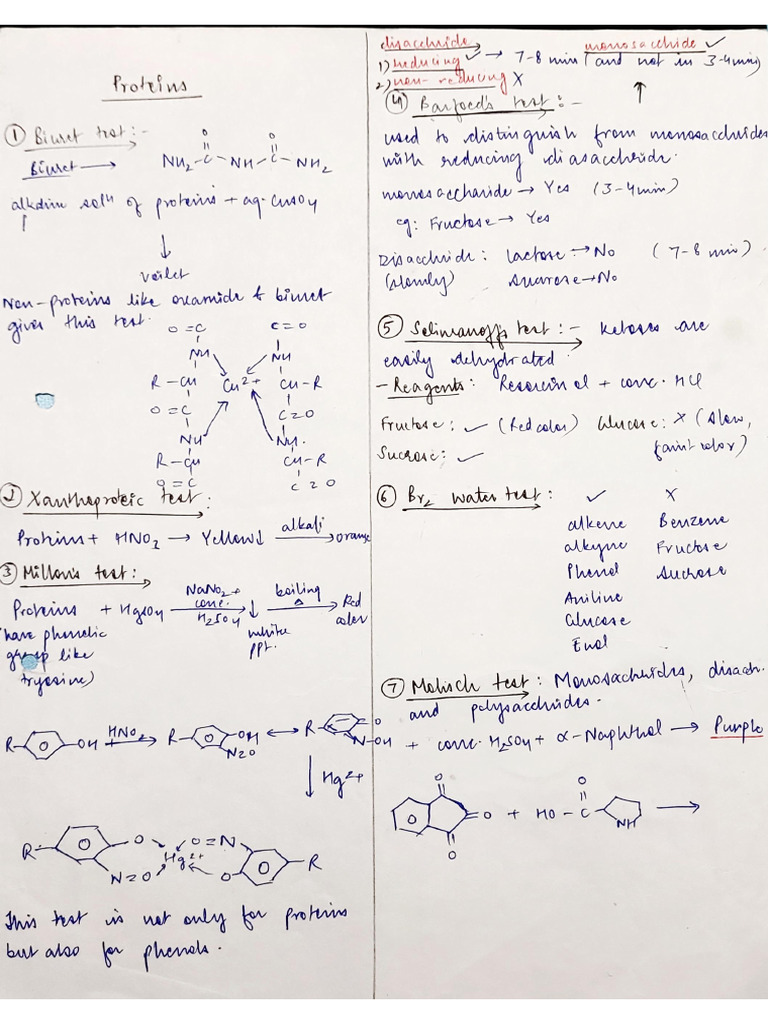 Proteins
① Biuret test :-
Biuret → NH2-C-NH-C-NH2
O O
alkaline solⁿ of proteins + aq. CuSO4
↓
voilet
Non-proteins like oxamide & biuret
gives this test.
O=C C=O
NH NH
R-CH Cu2+ CH-R
O=C C=O
NH NH.
R-CH CH-R
O=C C=O
② Xanthoproteic test :
Proteins + HNO3 → Yellow↓ alkali → orange
③ Millon's test :
Proteins + HgSO4 NaNO2 + conc. H2SO4 → ↓ white ppt. boiling Δ → Red color
(have phenolic
group like
tryosine)
R- -OH HNO2 → R- -OH N=O ↔ R- =O N-OH
↓ Hg2+
R- O O=N Hg2+ N=O O -R
This test is not only for proteins
but also for phenols.
disacchride monosacchride ✓
1) reducing ✓ → 7-8 min (and not in 3-4min)
2) non-reducing X ↑
④ Barfoed's test :-
used to distinguish from monosacchrides
with reducing diasacchride.
monosaccharide → Yes (3-4min)
eg: Fructose → Yes
Disacchride : lactose → No (7-8 min)
(slowly) sucrose → No
⑤ Selimanoff's test :- Ketoses are
easily dehydrated.
- Reagents : Resorcinol + conc. HCl
Fructose : ✓ (Red color) Glucose : X (slow,
faint color)
Sucrose : ✓
⑥ Br2 water test : ✓ X
alkene Benzene
alkyne Fructose
Phenol Sucrose
Aniline
Glucose
Enol
⑦ Molisch test : Monosacchrides, disacch.
and polysacchrides.
+ conc. H2SO4 + α-Naphthol → Purple
O O
O =O + HO-C- NH →
O